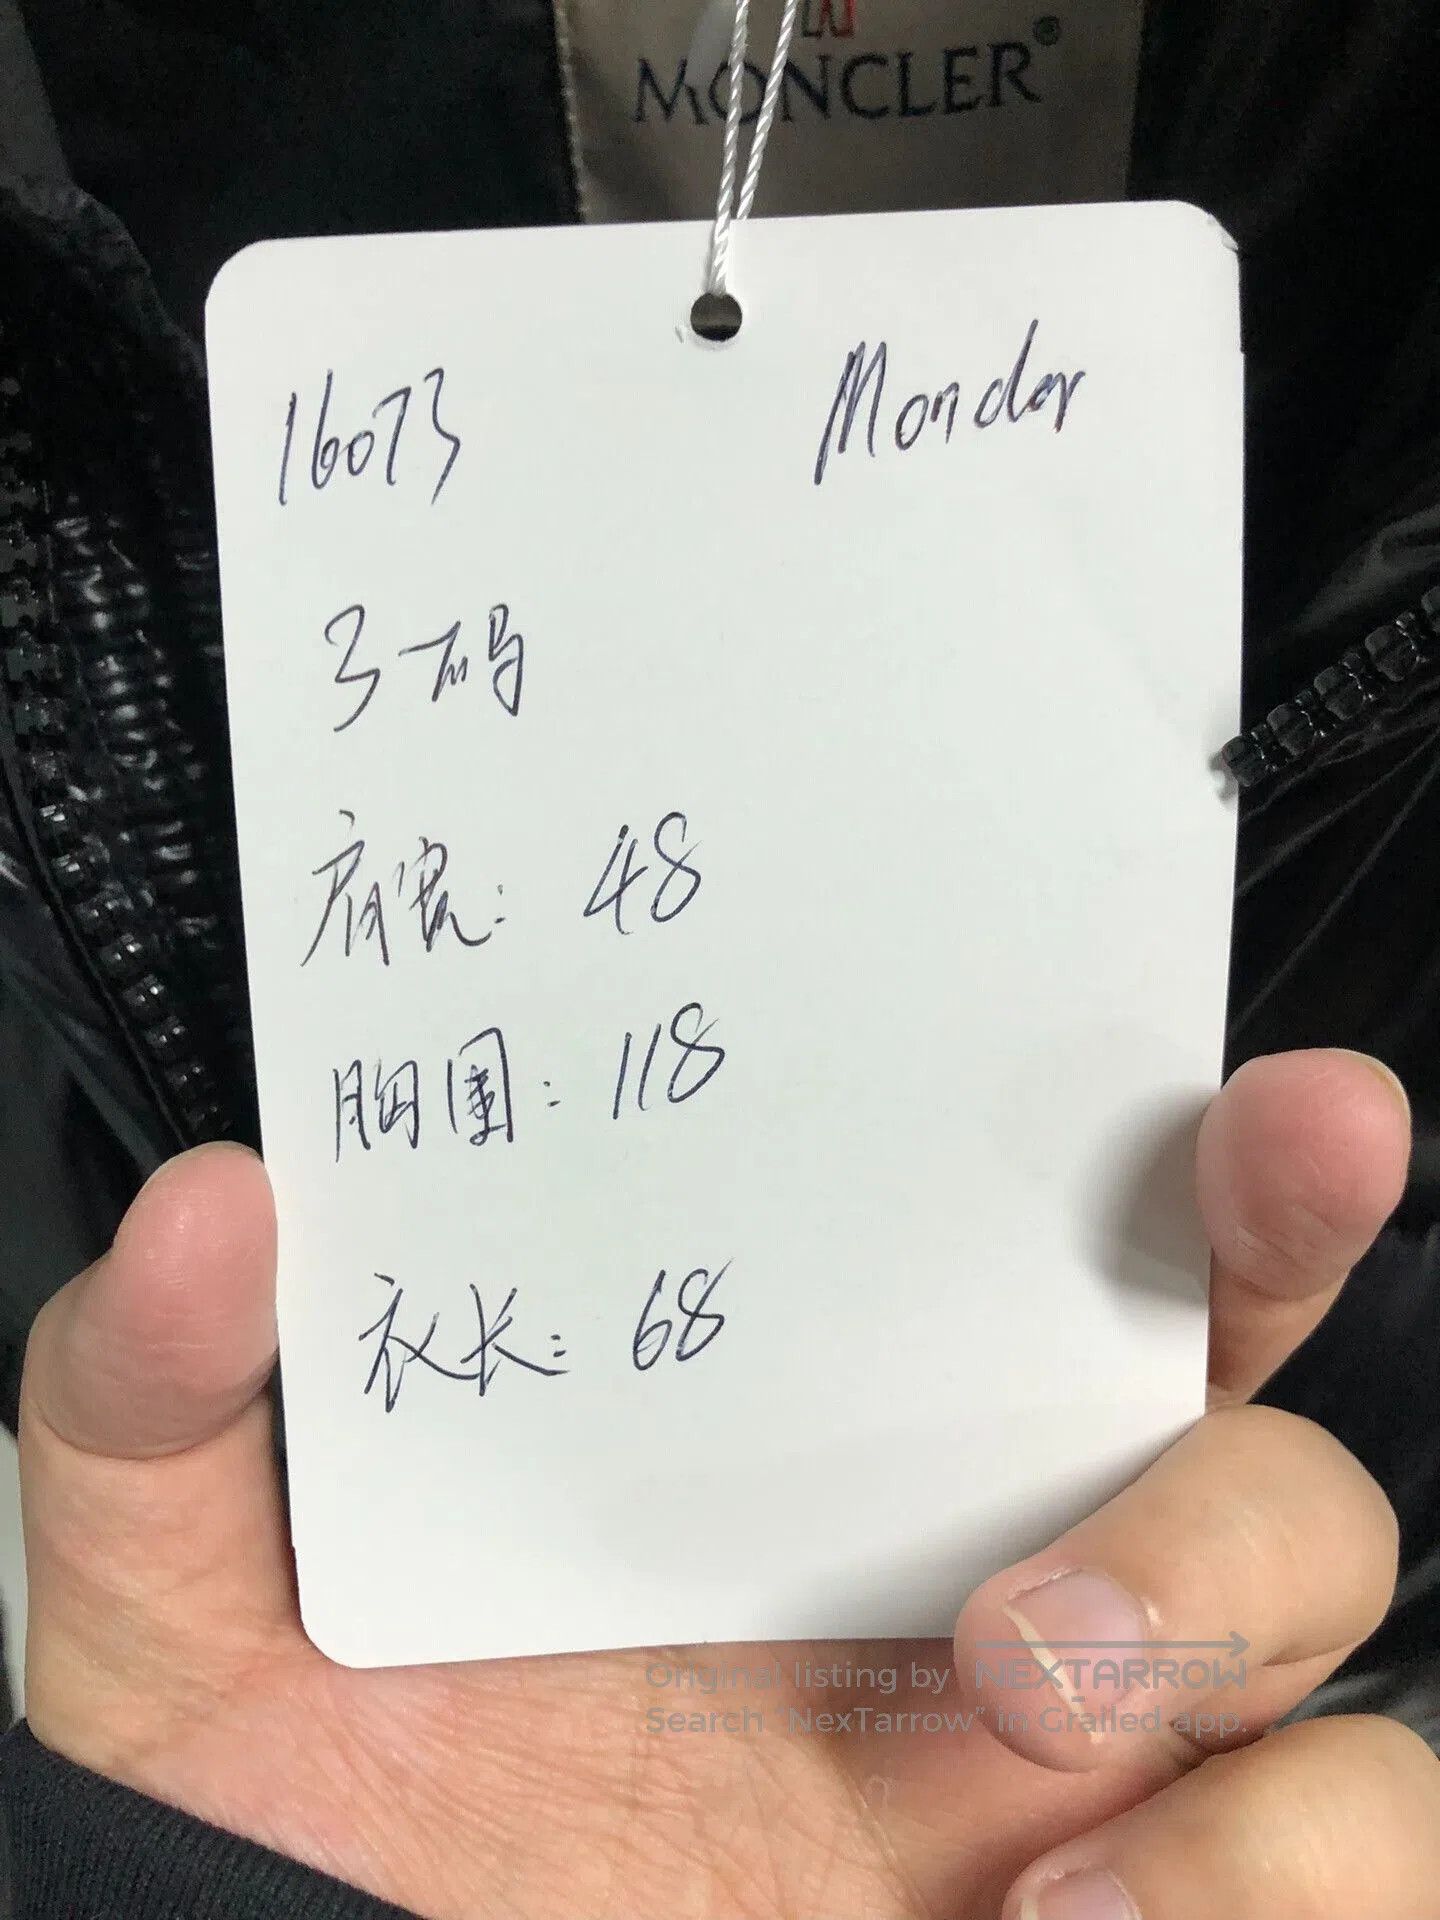 MONCLER®
16073 Moncler
3码
肩宽: 48
胸围: 118
衣长: 68
Original listing by NEXTARROW
Search "NexTarrow" in Grailed app.